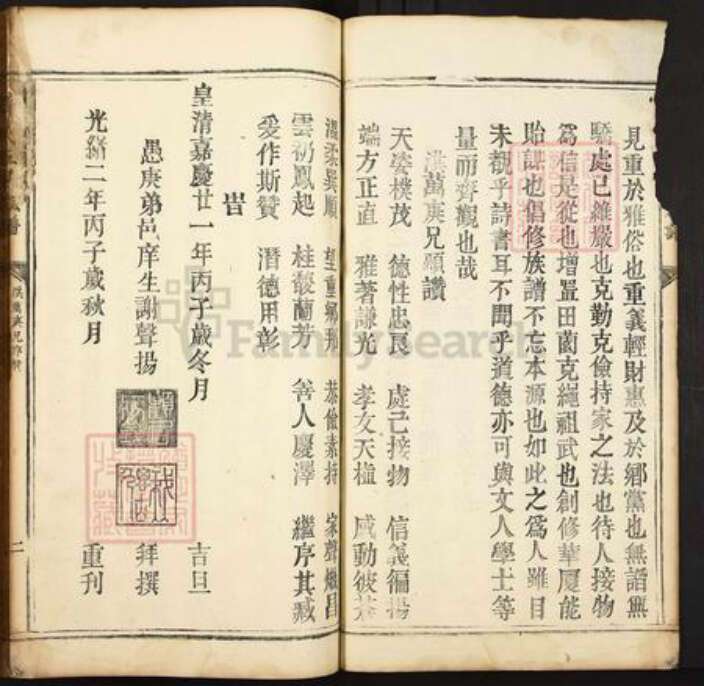 見重於雅俗也重義輕財惠及於鄉黨也無諂無
驕處己維嚴也克勤克儉持家之法也待人接物
為信是從也增置田園克繩祖武也創修華廈能
貽謀也倡修族譜不忘本源也如此之為人雖目
未覩乎詩書耳不聞乎道德亦可與文人學士等
量而齊觀也哉
萬庚兄願讚
天姿樸茂 德性忠良 處己接物 信義徧揚
端方正直 雅著謙光 孝友天植 咸動彼蒼
溫柔巽順 望重鄉邦 恭儉素持 家聲熾昌
雲礽鳳起 桂馥蘭芳 善人慶澤 繼序其臧
爰作斯贊 潛德用彰
旹
皇清嘉慶廿一年丙子歲冬月 吉旦
愚庚弟邑庠生謝聲揚 拜撰
光緒二年丙子歲秋月 重刊
二
FamilySearch